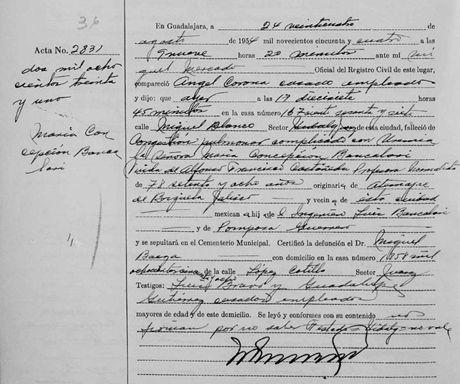 36
Acta No. 2831
dos mil ocho
cientos treinta
y uno
Maria Con
cepción Banca
lari
En Guadalajara, a 24 veinticuatro de
agosto de 1954 mil novecientos cincuenta y cuatro a
9 nueve horas 20 minutos ante mí Mi
guel Mercado Oficial del Registro Civil de este lugar,
compareció Angel Corona casado empleado
y dijo: que ayer a 17 diecisiete horas
45 minutos en la casa número 167 ciento sesenta y siete
calle Miguel Blanco Hidalgo de esta ciudad, falleció de
Congestión pulmonar complicada con Uremia
la Señora Maria Concepcion Bancalari
viuda de Alfonso Francisco Castañeda Profesora Normalista
de 78 setenta y ocho años originaria de
de Jalisco y vecin de esta ciudad
mexican a hij de Ingeniero Luis Bancalari
y de Pomposa Guerrero
y se sepultará en el Cementerio Municipal. Certificó la defunción el Dr. Miguel
Baeza con domicilio en la casa número 1958 mil
de la calle López Cotilla Sector Juarez
Testigos: Luis Bravo y Guadalupe
Gutierrez casados empleados
mayores de edad y de este domicilio. Se leyó y conformes con su contenido no
firman por no saber Testado = Hidalgo = no vale